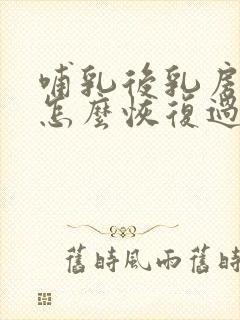 哺乳後乳房
怎麼恢復過
舊時風雨舊時